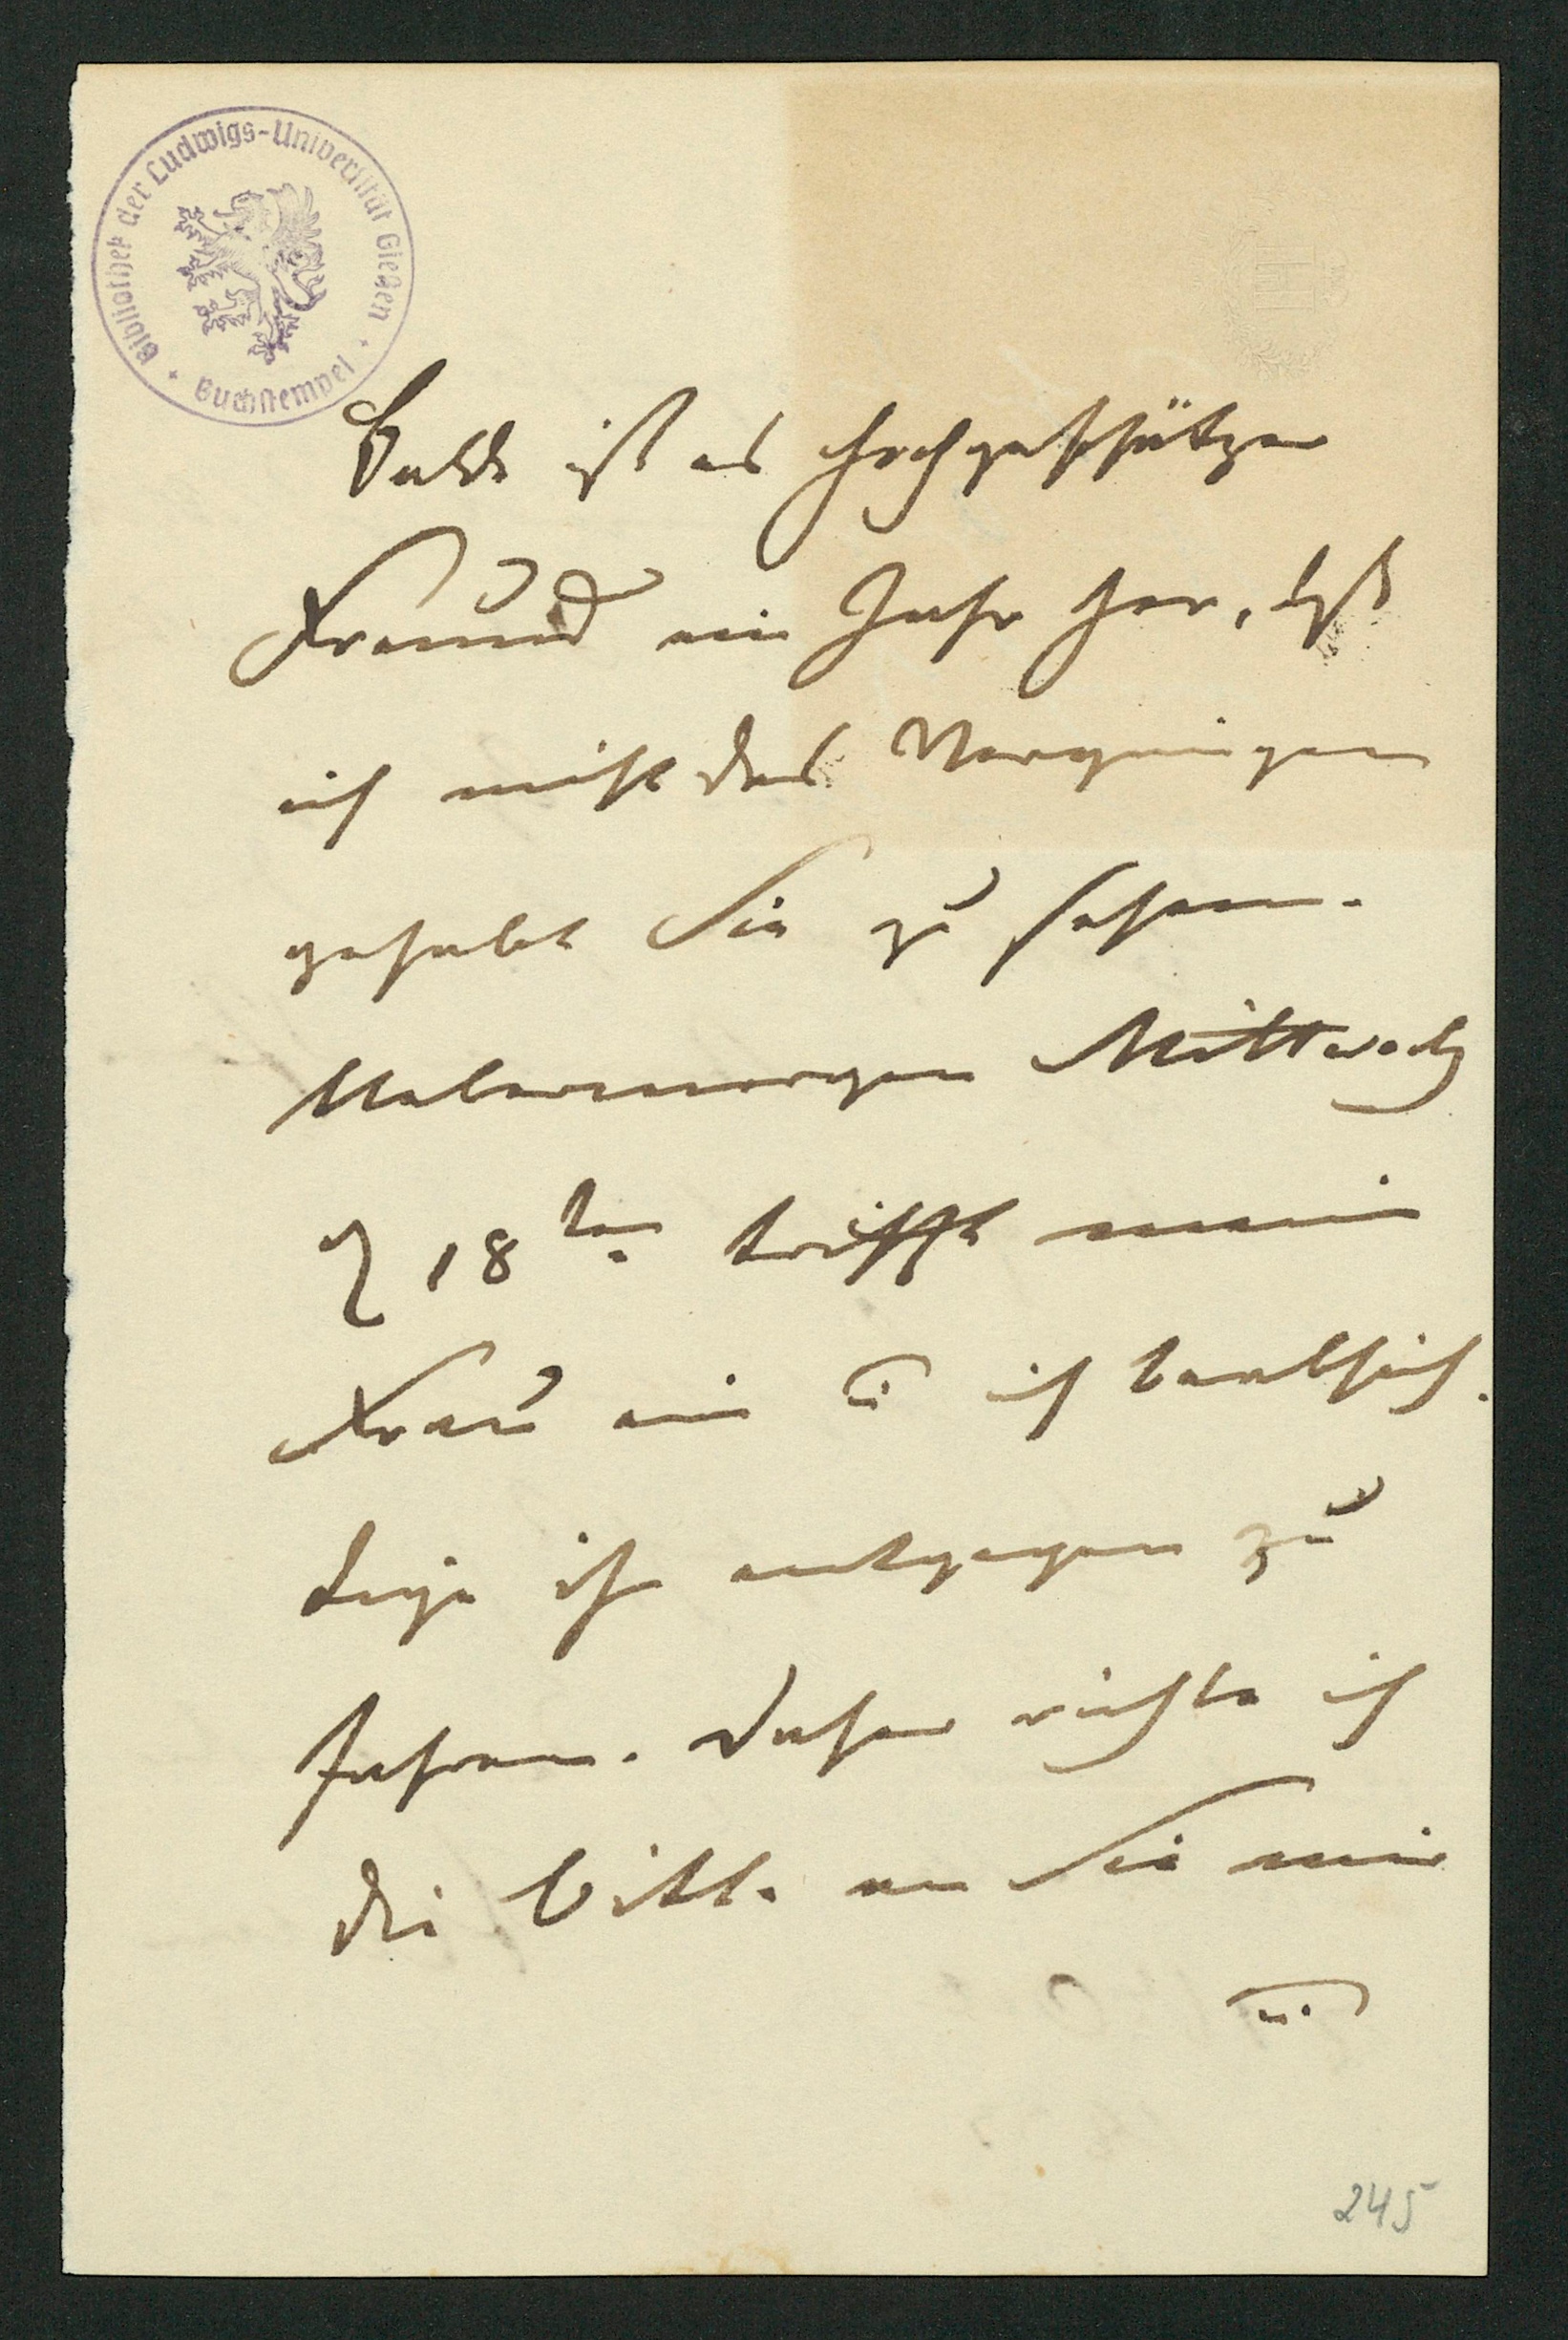 Bibliothek der Ludwigs-Universität Gießen
Buchstempel
Bald ist es hochgeschätzer
Freund ein Jahr her, daß
ich nicht das Vergnügen
gehabt Sie zu sehen.
Uebermorgen Mittwoch
d 18ten trifft meine
Frau ein u. ich beabsich.
tige ihr entgegen zu
fahren. Daher richte ich
die Bitte an Sie mir
u.
245